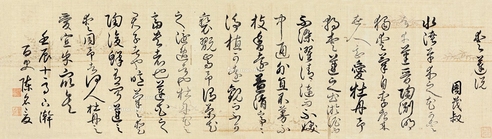 愛蓮説
周茂叔
水陸草木之花可愛
者甚蕃晉陶淵明
獨愛菊自李唐來
世人甚愛牡丹予
獨愛蓮之出淤泥而
不染濯清漣而不妖
中通外直不蔓不
枝香遠益清亭亭
淨植可遠觀而不可
褻翫焉予謂菊花
之隱逸者也牡丹花之
富貴者也蓮花之
君子者也噫菊之愛
陶後鮮有聞蓮之
愛同予者何人牡丹之
愛宜乎衆矣
壬辰十
陳